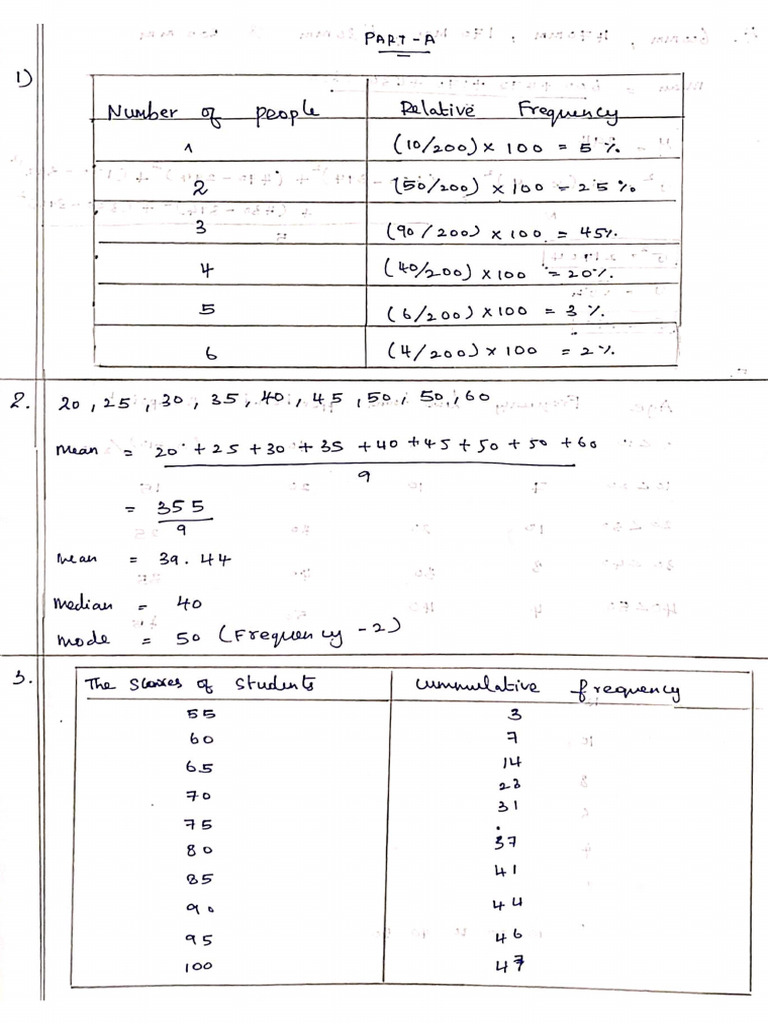 PART-A
1)
Number of people Relative Frequency
1 (10/200) x 100 = 5 %.
2 (50/200) x 100 = 25 %.
3 (90/200) x 100 = 45%.
4 (40/200) x 100 = 20%.
5 (6/200) x 100 = 3 %.
6 (4/200) x 100 = 2 %.
2. 20, 25, 30, 35, 40, 45, 50, 50, 60
Mean = 20 + 25 + 30 + 35 + 40 + 45 + 50 + 50 + 60
9
= 355
9
Mean = 39.44
Median = 40
Mode = 50 (Frequency - 2)
3. The Scores of Students Cummulative frequency
55 3
60 7
65 14
70 23
75 31
80 37
85 41
90 44
95 46
100 47